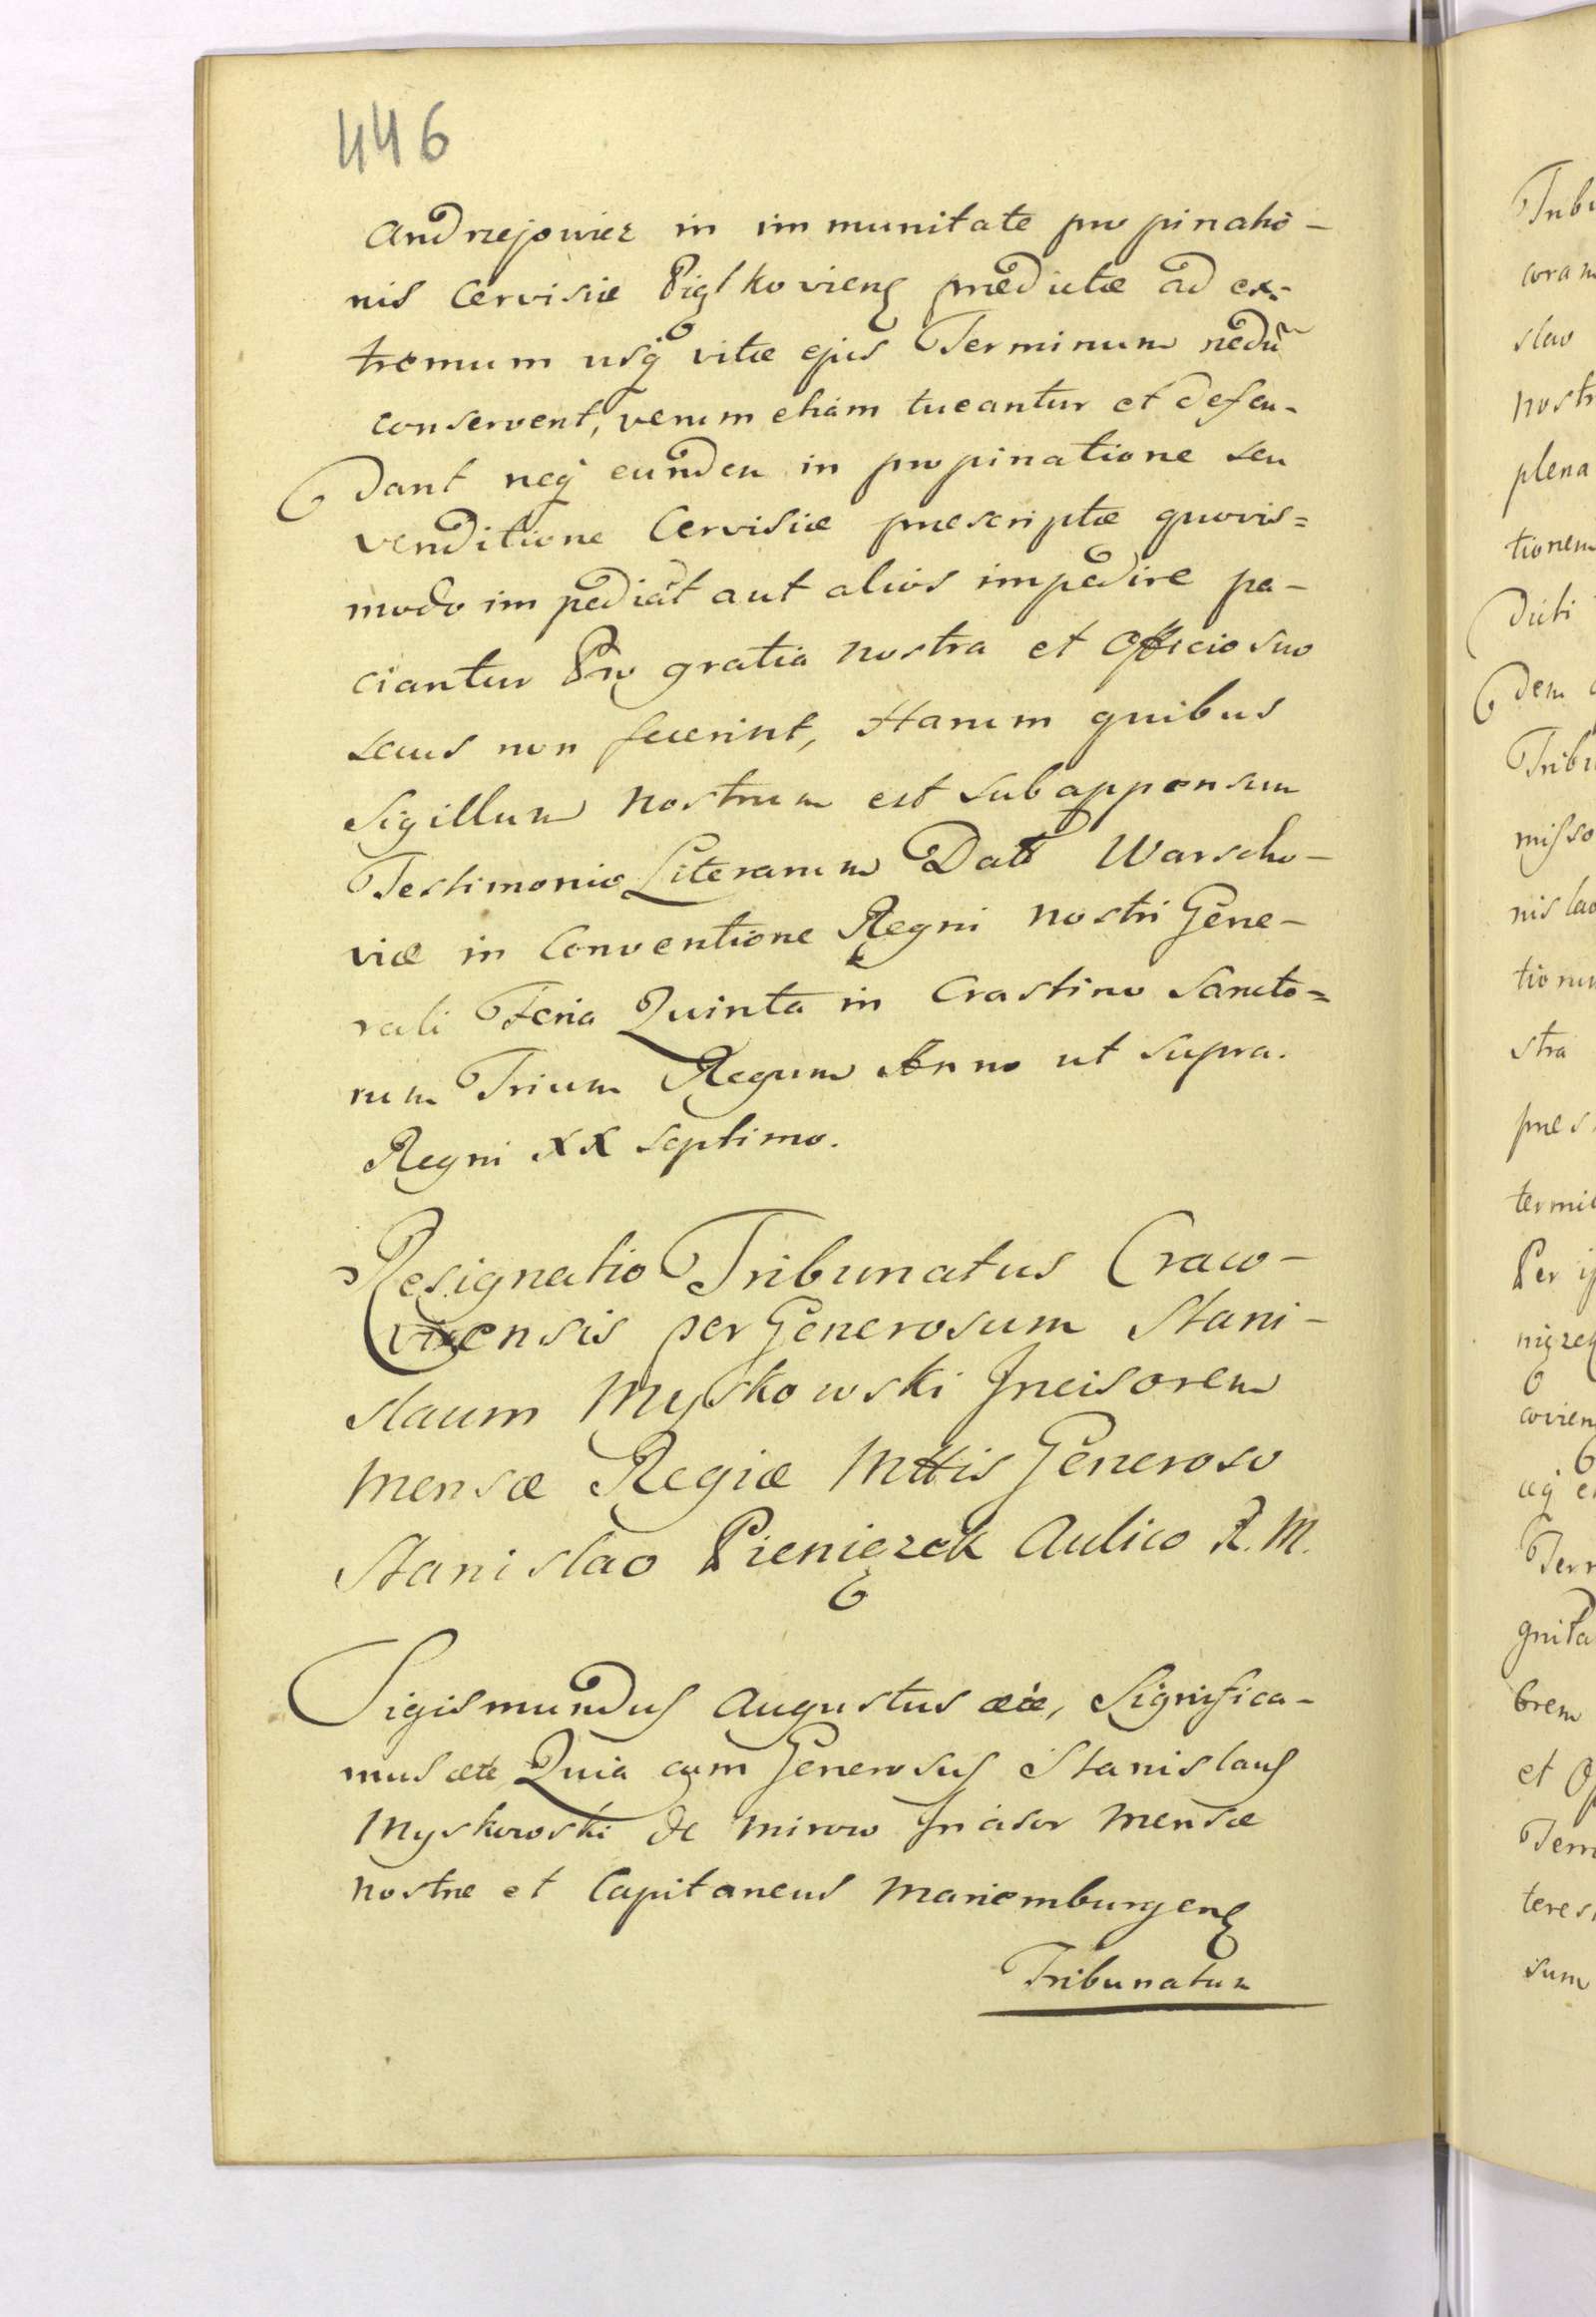 446
Andrzejowicz in immunitate propinatio-
nis Cervisiæ Piątkoviens prædictæ ad ex-
tremum usq vitæ ejus Terminum nedū
conservent, verum etiam tueantur et defen-
dant neq eundem in propinatione seu
venditione Cervisiæ præscriptæ quovis=
modo impediāt aut alios impedire pa-
ciantur Pro gratia nostra et Officio suo
secus non fecerint, Harum quibus
Sigillum nostrum est subappensum
Testimonio Literarum Datt Warscho-
viæ in Conventione Regni nostri Gene-
rali Feria Quinta in Crastino Sancto=
rum Trium Regum Anno ut supra.
Regni XX septimo.
Resignatio Tribunatus Craco-
viensis per Generosum Stani-
slaum Myskowski Incisorem
Mensæ Regiæ Mttis Generoso
Stanislao Pieniązek Aulico R. M.
Sigismundus Augustus etc, Significa-
mus etc Quia cum Generosus Stanislaus
Myskowski de Mirow Incisor Mensæ
Nostræ et Capitaneus Mariemburgens
Tribunatum
Tribu
coram
slao
nostr
plena
tionem
dicti
dem
Tribu
misso
nislao
tionum
stra
præs
termi
Per
covien
Terr
gnita
brem
et
sum